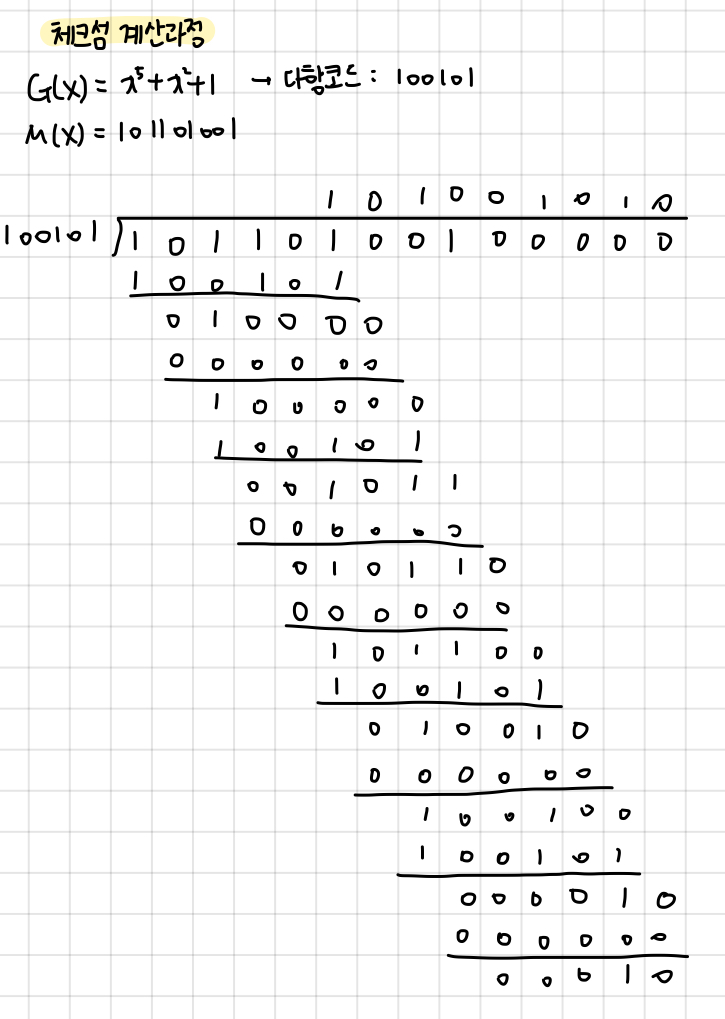 체크섬 계산과정
G(x) = x⁵+x²+1 → 다항코드 : 100101
M(x) = 101101001
1 0 1 0 0 1 0 1 0
100101 ) 1 0 1 1 0 1 0 0 1 0 0 0 0 0
1 0 0 1 0 1
0 1 0 0 0 0
0 0 0 0 0 0
1 0 0 0 0 0
1 0 0 1 0 1
0 0 1 0 1 1
0 0 0 0 0 0
0 1 0 1 1 0
0 0 0 0 0 0
1 0 1 1 0 0
1 0 0 1 0 1
0 1 0 0 1 0
0 0 0 0 0 0
1 0 0 1 0 0
1 0 0 1 0 1
0 0 0 0 1 0
0 0 0 0 0 0
0 0 0 1 0